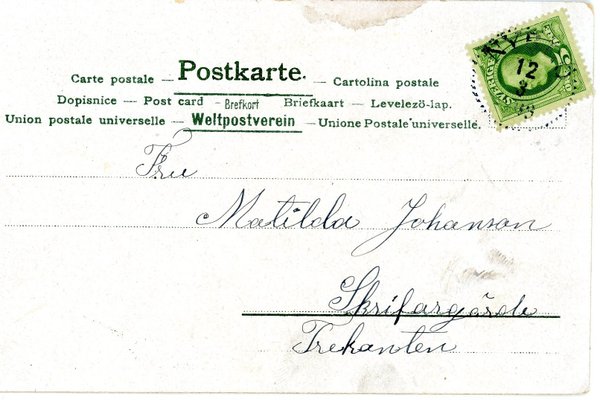 Carte postale — Postkarte. — Cartolina postale
Dopisnice — Post card - Brefkort Briefkaart — Levelezö-lap.
Union postale universelle — Weltpostverein — Unione Postale universelle.
NYB
12
3
Fru
Matilda Johanson
Skrifargärde
Trekanten